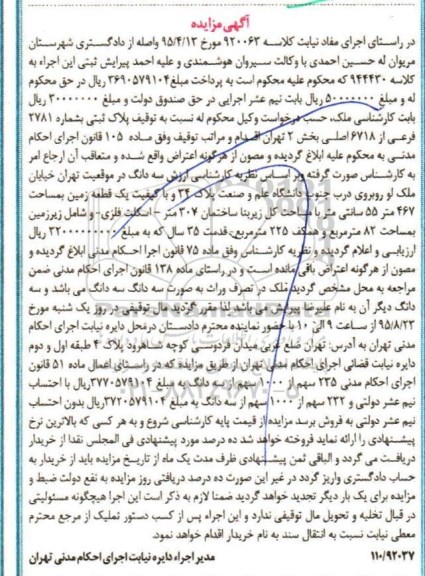 آگهی مزایده
در راستای اجرای مفاد نیابت کلاسه ۹۲۰۰۶۳ مورخ ۹۵/۴/۱۳ واصله از دادگستری شهرستان
مریوان له حسین احمدی با وکالت سیروان هوشمندی و علیه احمد پیرایش ثبتی این اجراء به
کلاسه ۹۴۴۴۳۰ که محکوم علیه محکوم است به پرداخت مبلغ ۳۶۹۰۵۷۹۱۰۴ ریال در حق محکوم
له و مبلغ ۵۰۰۰۰۰۰۰ ریال بابت نیم عشر اجرایی در حق صندوق دولت و مبلغ ۳۰۰۰۰۰۰۰ ریال
بابت کارشناسی ملک، حسب درخواست وکیل محکوم له نسبت به توقیف پلاک ثبتی بشماره ۲۷۸۱
فرعی از ۶۷۱۸ اصلی بخش ۲ تهران اقدام و مراتب توقیف وفق ماده ۱۰۵ قانون اجرای احکام
مدنی به محکوم علیه ابلاغ گردیده و مصون از هرگونه اعتراض واقع شده و متعاقب آن ارجاع امر
به کارشناس صورت گرفته وبر اساس نظریه کارشناسی ارزش سه دانگ در موقعیت تهران خیابان
ملک لو روبروی درب جنوب دانشگاه علم و صنعت پلاک ۳۴ و با کیفیت یک قطعه زمین بمساحت
۴۶۷ متر ۵۵ سانتی متر با مساحت کل زیربنا ساختمان ۳۰۴ متر - اسکلت فلزی- و شامل زیرزمین
بمساحت ۸۲ مترمربع و همکف ۲۲۵ مترمربع، قدمت ۳۵ سال که به مبلغ ۲۲۰۰۰۰۰۰۰۰۰ ریال
ارزیابی و اعلام گردید و نظریه کارشناس وفق ماده ۷۵ قانون اجرا احکام مدنی ابلاغ گردیده و
مصون از هرگونه اعتراض باقی مانده است و در راستای ماده ۱۳۸ قانون اجرای احکام مدنی ضمن
مراجعه به محل مشخص گردید ملک در تصرف وراث به صورت سه دانگ سه دانگ می باشد و سه
دانگ دیگر آن به نام علیرضا پیرایش می باشد لذا مقرر گردید مال توقیفی در روز یک شنبه مورخ
۹۵/۸/۲۳ از ساعت ۹ الی ۱۰ با حضور نماینده محترم دادستان درمحل دایره نیابت اجرای احکام
مدنی تهران به آدرس: تهران ضلع غربی میدان فردوسی کوچه شاهرود پلاک ۴ طبقه اول و دوم
دایره نیابت قضائی اجرای احکام مدنی تهران از طریق مزایده که در راستای اعمال ماده ۵۱ قانون
اجرای احکام مدنی ۲۳۵ سهم از ۱۰۰۰ سهم از سه دانگ به مبلغ ۳۷۷۰۵۷۹۱۰۴ ریال با احتساب
نیم عشر دولتی و ۲۳۲ سهم از ۱۰۰۰ سهم از سه دانگ به مبلغ ۳۷۲۰۵۷۹۱۰۴ ریال بدون احتساب
نیم عشر دولتی به فروش برسد مزایده از قیمت پایه کارشناسی شروع و به هر کسی که بالاترین نرخ
پیشنهادی را ارائه نماید فروخته خواهد شد ده درصد مورد پیشنهادی فی المجلس نقدا از خریدار
دریافت می گردد و الباقی ثمن پیشنهادی ظرف مدت یک ماه از تاریخ مزایده باید از خریدار به
حساب دادگستری واریز گردد در غیر این صورت ده درصد دریافتی روز مزایده به نفع دولت ضبط و
مزایده برای یک بار دیگر تجدید خواهد گردید ضمنا لازم به ذکر است این اجرا هیچگونه مسئولیتی
در قبال تخلیه و تحویل مال توقیفی ندارد و این اجراء پس از کسب دستور تملیک از مرجع محترم
معطی نیابت نسبت به انتقال سند به نام خریدار اقدام خواهد نمود.
۱۱۰/۹۲۰۳۷ مدیر اجراء دایره نیابت اجرای احکام مدنی تهران